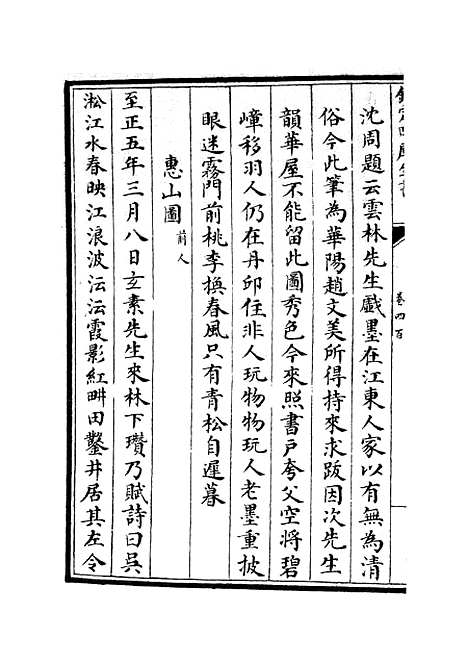 欽定四庫全書
卷四百
沈周題云雲林先生戲墨在江東人家以有無為清
俗今此筆為華陽趙文美所得持來求跋因次先生
韻華屋不能留此圖秀色今來照書戸夸父空將碧
嶂移羽人仍在丹邱住非人玩物物玩人老墨重披
眼迷霧門前桃李換春風只有青松自遲暮
惠山圖 前人
至正五年三月八日玄素先生來林下瓚乃賦詩曰吳
淞江水春映江浪波沄沄霞影紅畊田鑿井居其左令